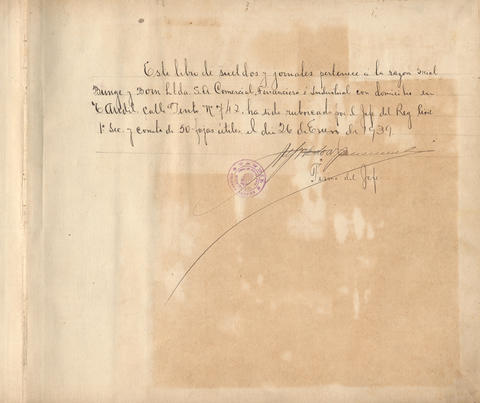 Este libro de sueldos y jornales pertenece a la razon social
Bunge y Born Ltda. S.A. Comercial, Financiera é Industrial con domicilio en
Tandil, calle Pinto Nº 742, ha sido rubricado por el Jefe del Reg. Civil
1ª Sec. y consta de 50 fojas útiles, el dia 26 de Enero de 1939.
Firma del Jefe